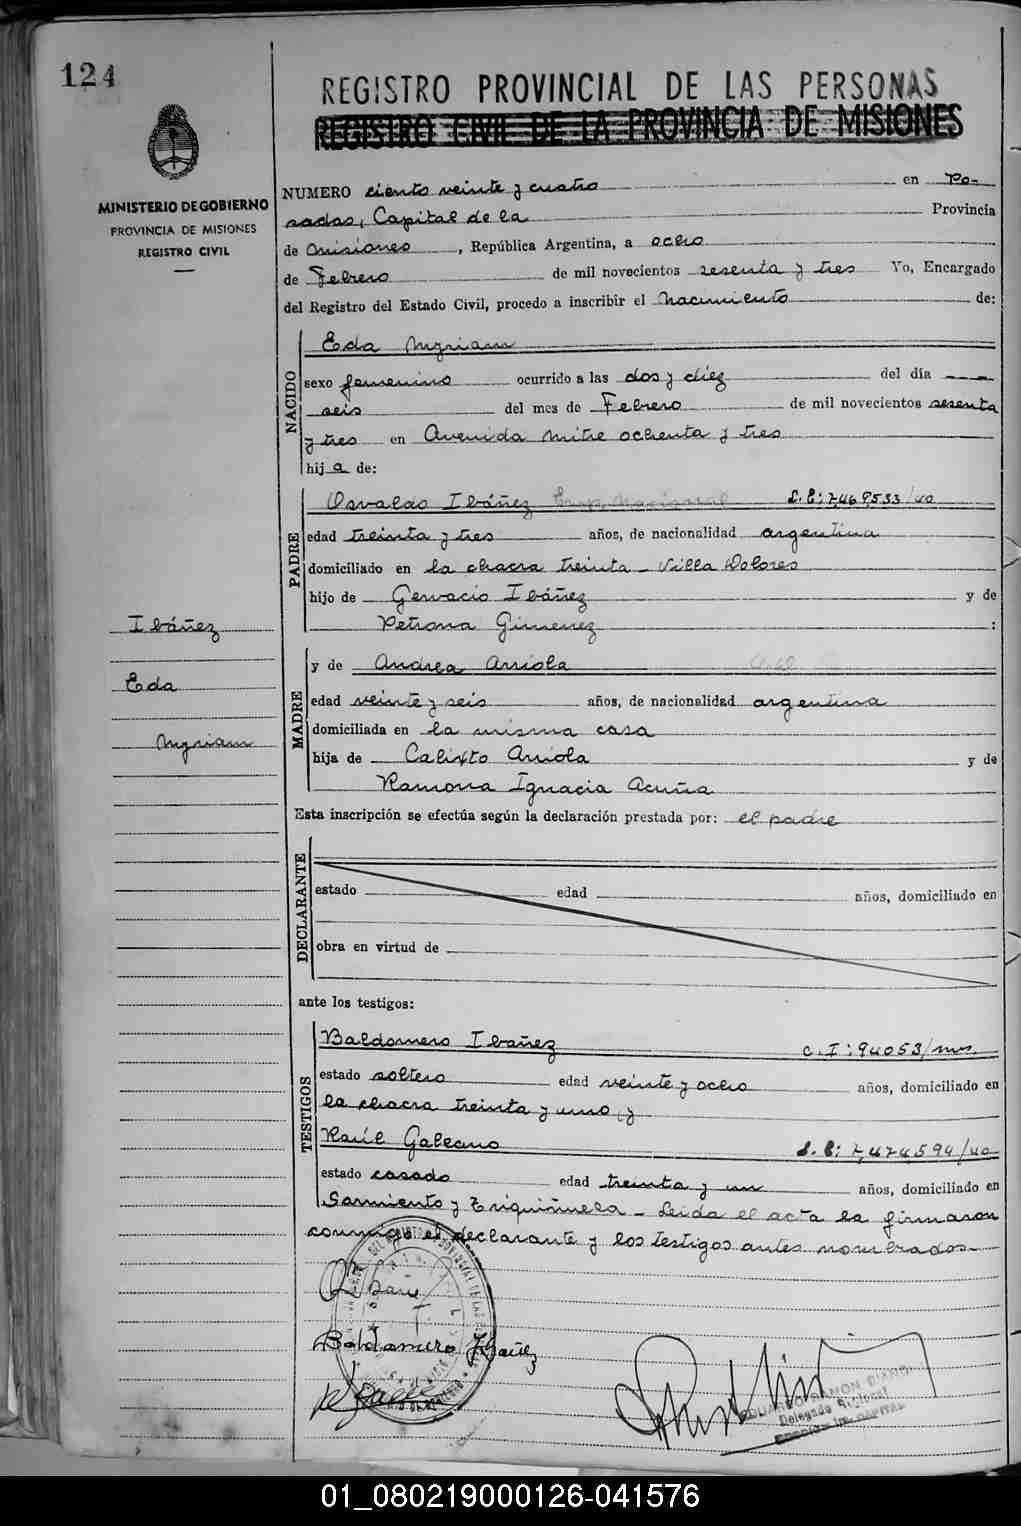 124
REGISTRO PROVINCIAL DE LAS PERSONAS
REGISTRO CIVIL DE LA PROVINCIA DE MISIONES
MINISTERIO DE GOBIERNO
PROVINCIA DE MISIONES
REGISTRO CIVIL
NUMERO ciento veinte y cuatro en Po-
sadas, Capital de la Provincia
de Misiones, República Argentina, a ocho
de Febrero de mil novecientos sesenta y tres Yo, Encargado
del Registro del Estado Civil, procedo a inscribir el nacimiento de:
NACIDO
Eda Myriam
sexo femenino ocurrido a las dos y diez del día ---
seis del mes de Febrero de mil novecientos sesenta
y tres en Avenida Mitre ochenta y tres
hija de:
PADRE
Osvaldo Ibáñez
edad treinta y tres años, de nacionalidad argentina
domiciliado en la chacra treinta - Villa Dolores
hijo de Gervacio Ibáñez y de
Petrona Gimenez :
Ibáñez
Eda
Myriam
MADRE
y de Andrea Arriola
edad veinte y seis años, de nacionalidad argentina
domiciliada en la misma casa
hija de Calixto Arriola y de
Ramona Ignacia Acuña
Esta inscripción se efectúa según la declaración prestada por: el padre
DECLARANTE
estado edad años, domiciliado en
obra en virtud de
ante los testigos:
TESTIGOS
Baldomero Ibañez C.I: 94053/mns.
estado soltero edad veinte y ocho años, domiciliado en
la chacra treinta y uno, y
Raúl Galeano
estado casado edad treinta y un años, domiciliado en
Sarmiento y - Leida el acta la firmaron
conmigo el declarante y los testigos antes nombrados.-
Baldomero Ibañez
01_080219000126-041576